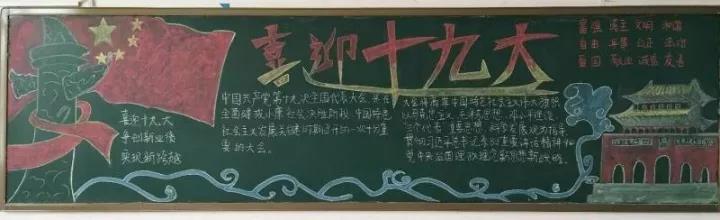 喜迎十九大
富强 民主 文明 和谐
自由 平等 公正 法治
爱国 敬业 诚信 友善
喜迎十九大
争创新业绩
实现新跨越
中国共产党第十九次全国代表大会,是在
全面建成小康社会决胜阶段、中国特色
社会主义发展关键时期召开的一次十分重
要的大会。
大会将高举中国特色社会主义伟大旗帜
以马列主义、毛泽东思想、邓小平理论
三个代表 重要思想、科学发展观为指导
贯彻习近平总书记系列重要讲话精神和
党中央治国理政